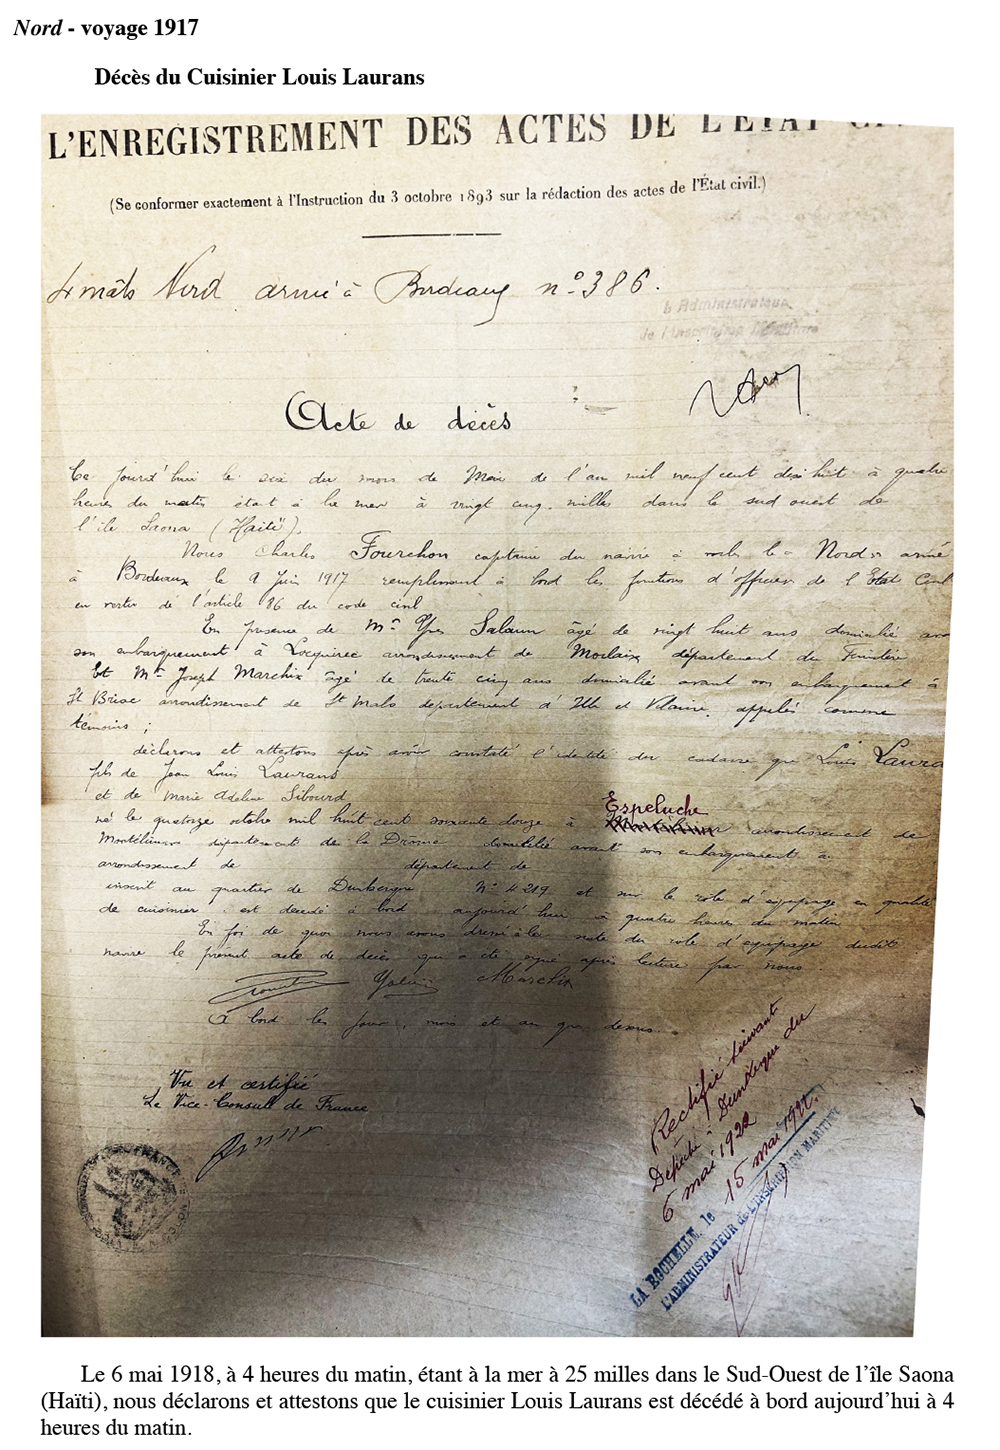 Nord - voyage 1917
Décès du Cuisinier Louis Laurans
L'ENREGISTREMENT DES ACTES DE L'ETAT
(Se conformer exactement à l'Instruction du 3 octobre 1893 sur la rédaction des actes de l'État civil.)
4 mâts Nord armé à Bordeaux n° 386.
L'Administrateur
de l'Inscription Maritime
Acte de décès
Ce jourd'hui le six du mois de Mai de l'an mil neuf cent dix huit à quatre
heures du matin étant à la mer à vingt cinq milles dans le sud ouest de
l'ile Saona (Haïti).
Nous Charles Fourchon capitaine du navire à voiles le "Nord" armé
à Bordeaux le 9 Juin 1917 remplissant à bord les fonctions d'officier de l'Etat Civil
en vertu de l'article 86 du code civil
En présence de Mr Yves Salaun âgé de vingt huit ans domicilié avant
son embarquement à Locquirec arrondissement de Morlaix département du Finistère
Et Mr Joseph Marchix âgé de trente cinq ans domicilié avant son embarquement à
St Briac arrondissement de St Malo département d'Ille et Vilaine, appelés comme
témoins ;
déclarons et attestons après avoir constaté l'identité du cadavre que Louis Laura
fils de Jean Louis Laurans
et de Marie Adeline Sibourd
né le quatorze octobre mil huit cent soixante douze à Espeluche arrondissement de
Montélimar département de la Drôme domicilié avant son embarquement à
arrondissement de département de
inscrit au quartier de Dunkerque N° 4219 et sur le rôle d'équipage en qualité
de cuisinier, est décédé à bord aujourd'hui à quatre heures du matin
En foi de quoi nous avons dressé à la suite du rôle d'équipage dudit
navire le présent acte de décès qui a été signé après lecture par nous
Salaun Marchix
A bord les jour, mois et an que dessus.
Vu et certifié
Le Vice-Consul de France
Rectifié suivant
Dépêche Dunkerque du
6 mai 1922
LA ROCHELLE, le 15 mai 1922.
L'ADMINISTRATEUR de L'INSCRIPTION MARITIME
Le 6 mai 1918, à 4 heures du matin, étant à la mer à 25 milles dans le Sud-Ouest de l'île Saona
(Haïti), nous déclarons et attestons que le cuisinier Louis Laurans est décédé à bord aujourd'hui à 4
heures du matin.